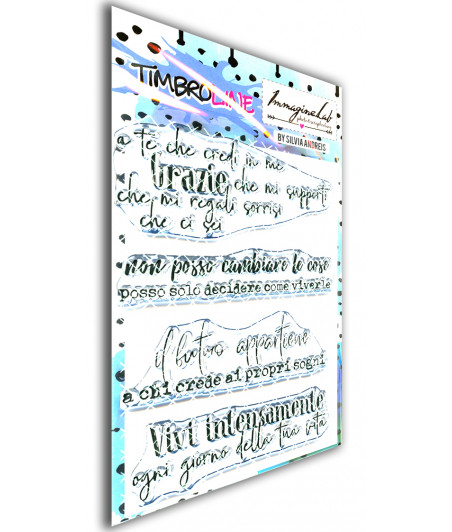 TIMBROLINE
ImmagineLab
BY SILVIA ANDREIS
a te che credi in me
Grazie che mi supporti
che mi regali sorrisi
che ci sei
non posso cambiare le cose
posso solo decidere come viverle
il futuro appartiene
a chi crede ai propri sogni
Vivi intensamente
ogni giorno della tua vita